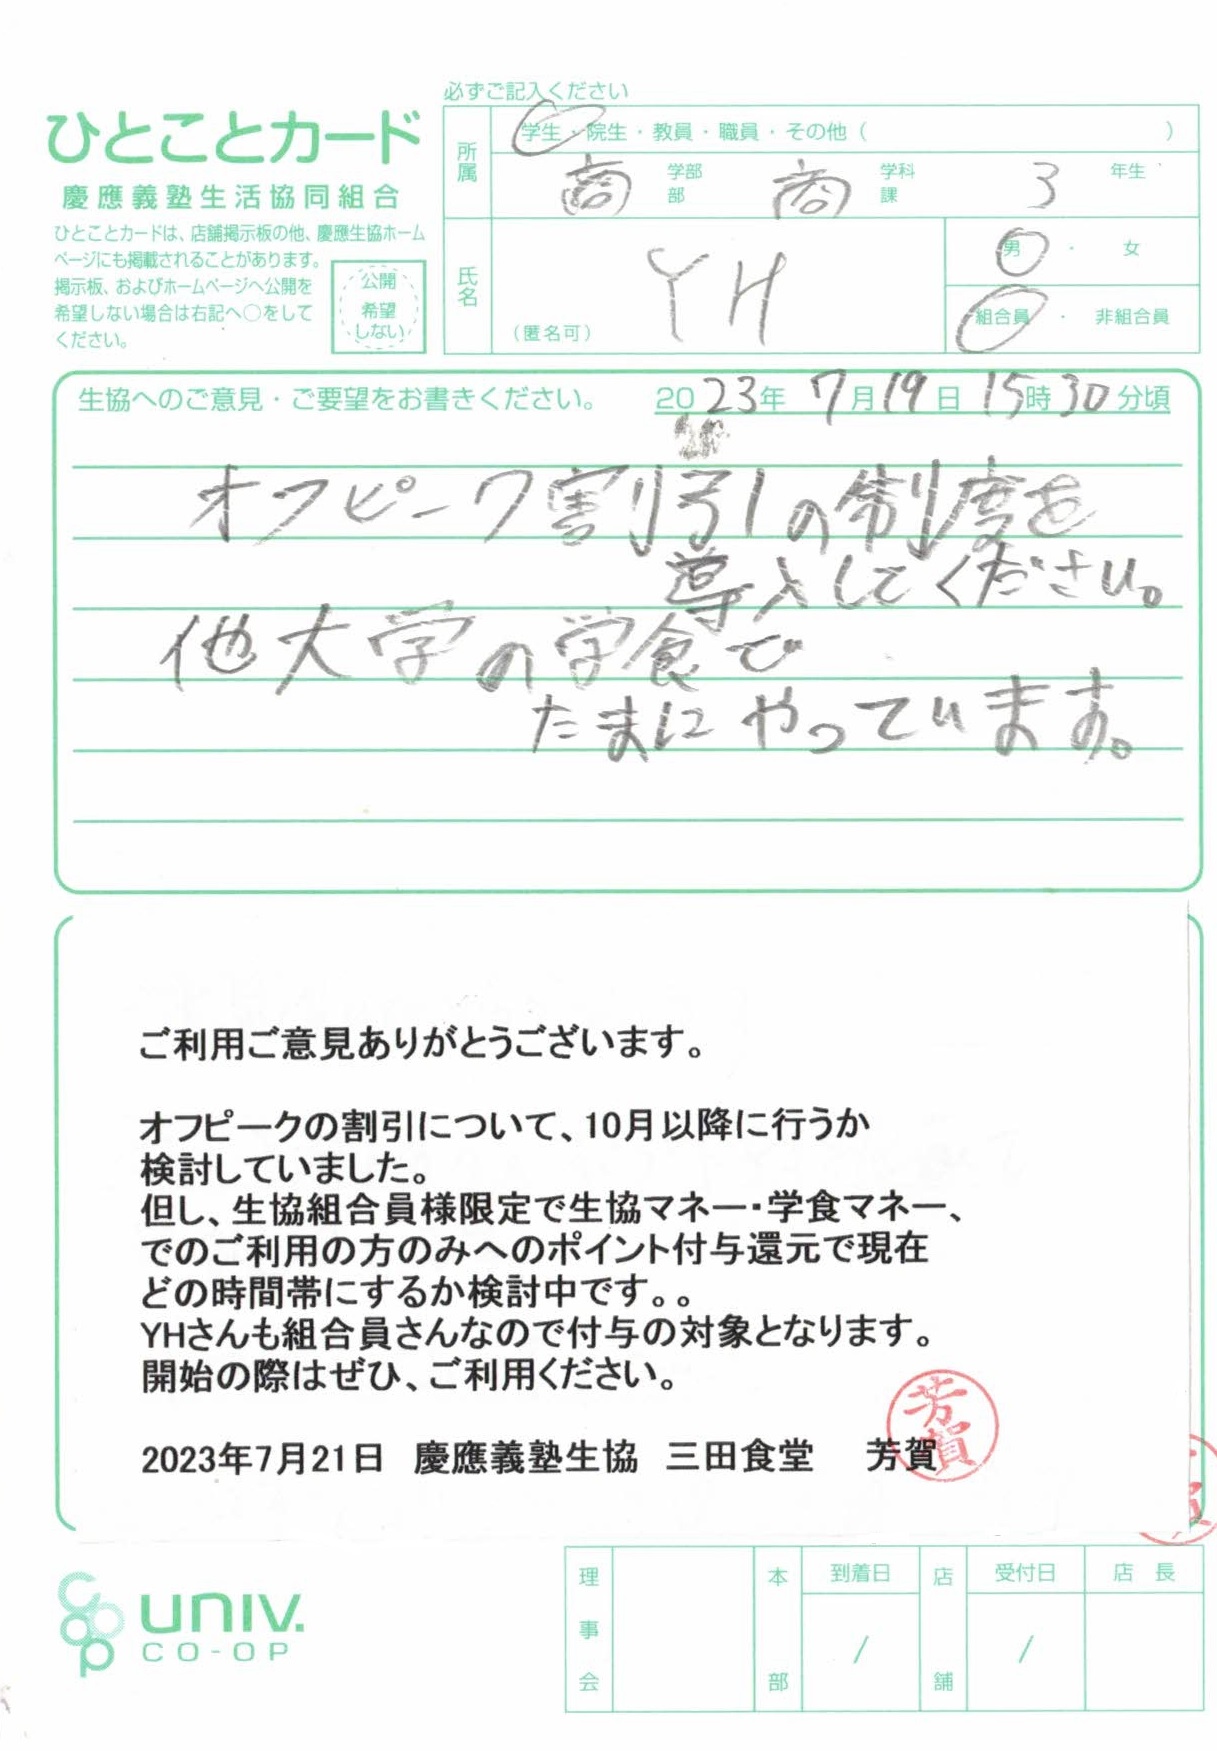 必ずご記入ください
ひとことカード
慶應義塾生活協同組合
ひとことカードは、店舗掲示板の他、慶應生協ホーム
ページにも掲載されることがあります。
掲示板、およびホームページへ公開を
希望しない場合は右記へ○をして
ください。
公開
希望
しない
所属
学生・院生・教員・職員・その他（ ）
商 学部 商 学科 3 年生
部 課
氏名
YH
（匿名可）
男 ・ 女
組合員 ・ 非組合員
生協へのご意見・ご要望をお書きください。 2023年 7月19日 15時30分頃
オフピーク割引の制度を
導入してください。
他大学の学食で
たまにやっています。
ご利用ご意見ありがとうございます。
オフピークの割引について、10月以降に行うか
検討していました。
但し、生協組合員様限定で生協マネー・学食マネー、
でのご利用の方のみへのポイント付与還元で現在
どの時間帯にするか検討中です。。
YHさんも組合員さんなので付与の対象となります。
開始の際はぜひ、ご利用ください。
2023年7月21日 慶應義塾生協 三田食堂 芳賀
芳賀
coop
UNIV.
CO-OP
理事会
本部
到着日
/
店舗
受付日
/
店長